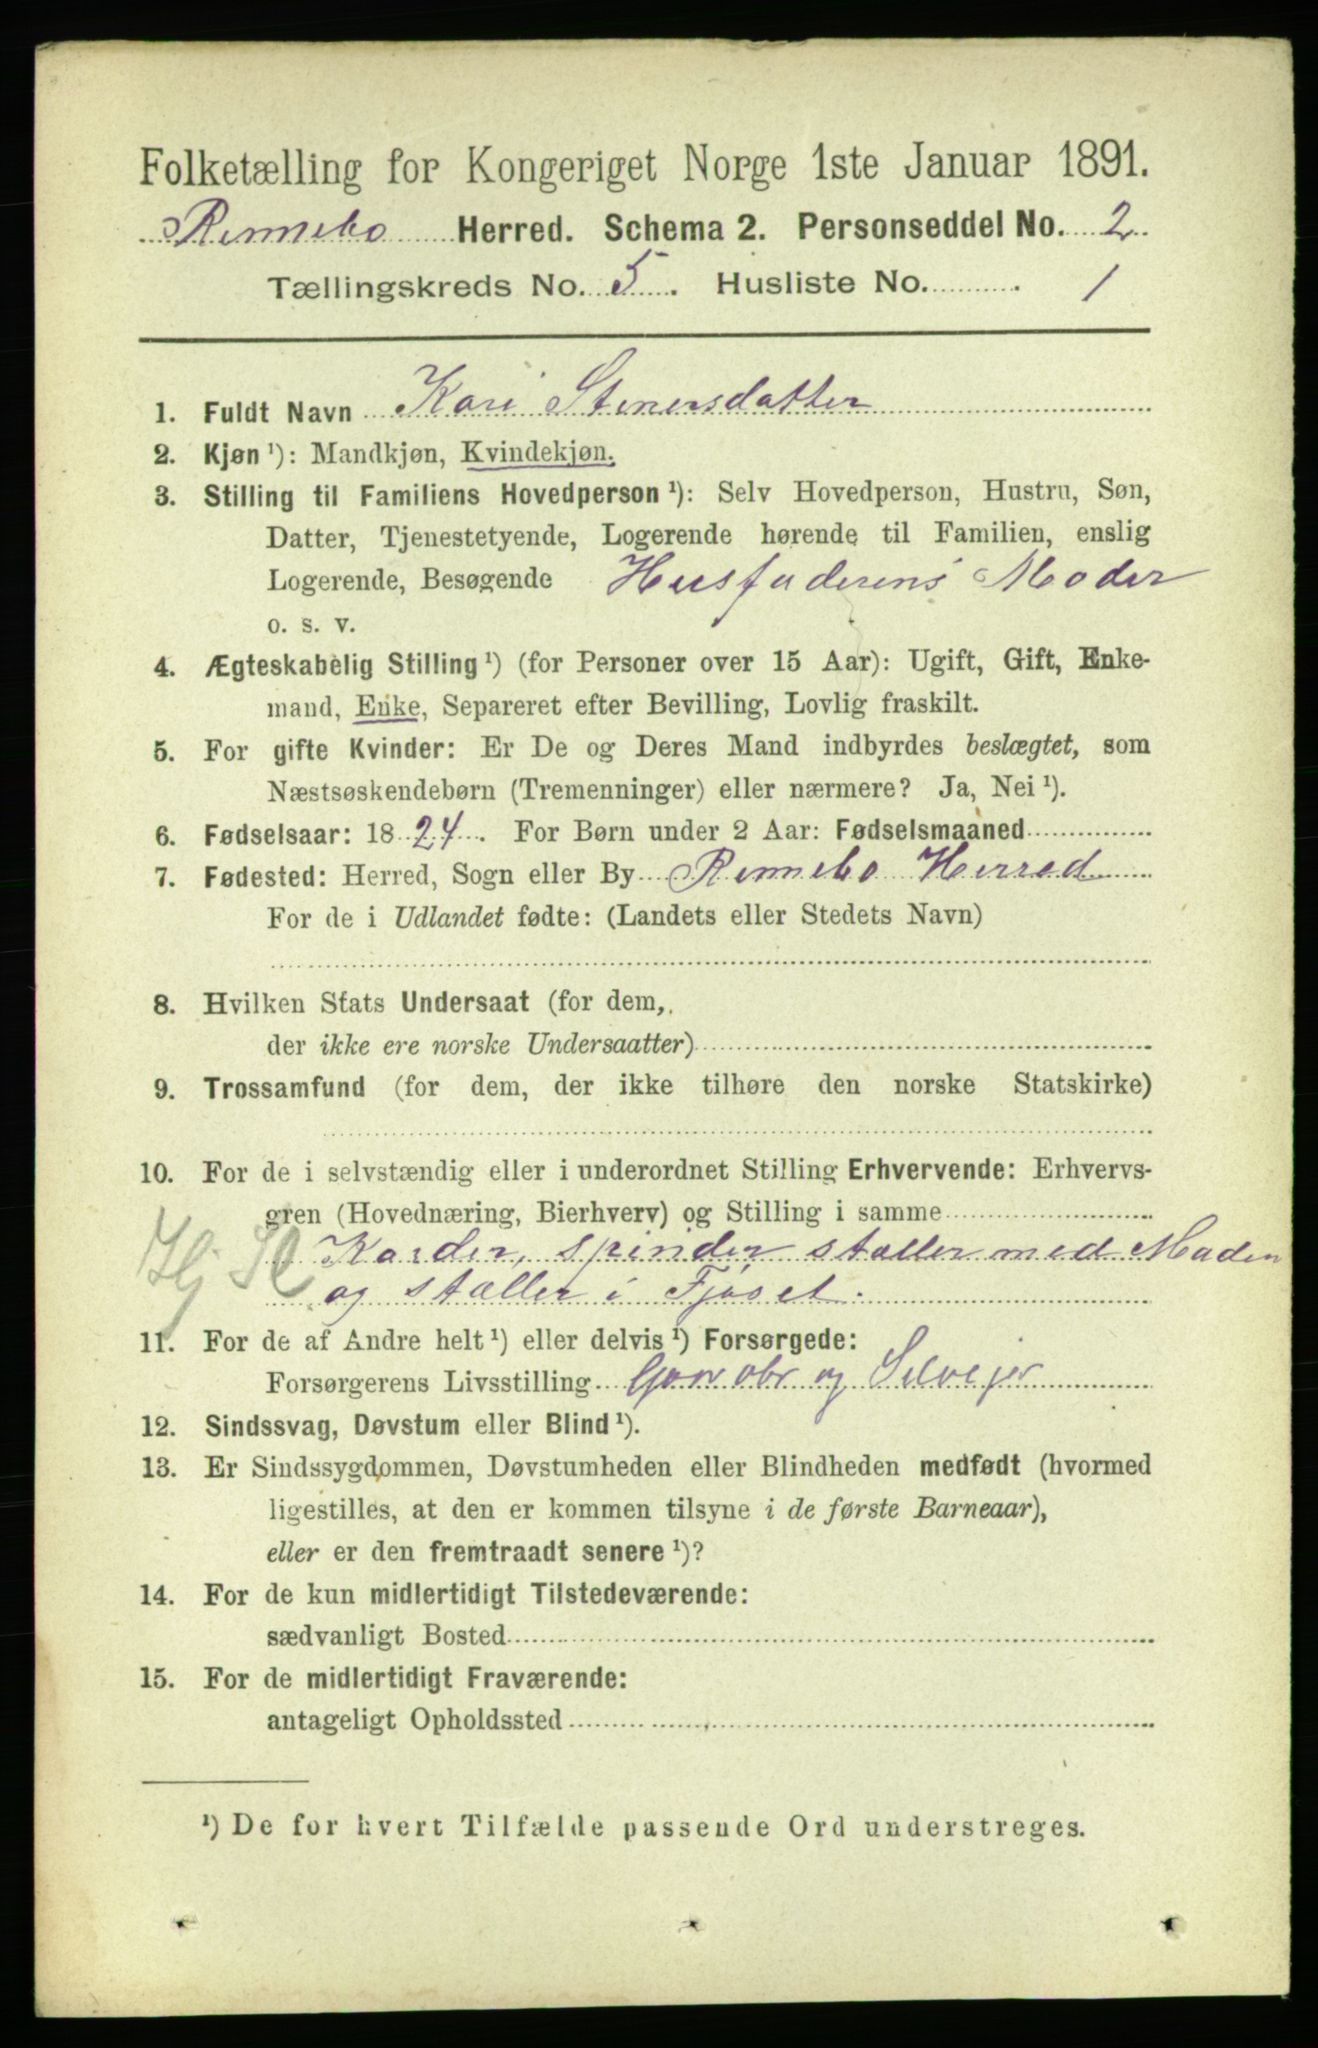 Folketælling for Kongeriget Norge 1ste Januar 1891.
Rennebo Herred. Schema 2. Personseddel No. 2
Tællingskreds No. 5. Husliste No. 1
1. Fuldt Navn Kari Stenersdatter
2. Kjøn ¹): Mandkjøn, Kvindekjøn.
3. Stilling til Familiens Hovedperson ¹): Selv Hovedperson, Hustru, Søn,
Datter, Tjenestetyende, Logerende hørende til Familien, enslig
Logerende, Besøgende Husfaderens Moder
o. s. v.
4. Ægteskabelig Stilling ¹) (for Personer over 15 Aar): Ugift, Gift, Enke-
mand, Enke, Separeret efter Bevilling, Lovlig fraskilt.
5. For gifte Kvinder: Er De og Deres Mand indbyrdes beslægtet, som
Næstsøskendebørn (Tremenninger) eller nærmere? Ja, Nei ¹).
6. Fødselsaar: 1824. For Børn under 2 Aar: Fødselsmaaned
7. Fødested: Herred, Sogn eller By Rennebo Herred
For de i Udlandet fødte: (Landets eller Stedets Navn)
8. Hvilken Stats Undersaat (for dem,
der ikke ere norske Undersaatter)
9. Trossamfund (for dem, der ikke tilhøre den norske Statskirke)
10. For de i selvstændig eller i underordnet Stilling Erhvervende: Erhvervs-
gren (Hovednæring, Bierhverv) og Stilling i samme
Karder, spinder stæller med Maden
og stæller i Fjøset.
11. For de af Andre helt ¹) eller delvis ¹) Forsørgede:
Forsørgerens Livsstilling Gaardbr og Selvejer
12. Sindssvag, Døvstum eller Blind ¹).
13. Er Sindssygdommen, Døvstumheden eller Blindheden medfødt (hvormed
ligestilles, at den er kommen tilsyne i de første Barneaar),
eller er den fremtraadt senere ¹)?
14. For de kun midlertidigt Tilstedeværende:
sædvanligt Bosted
15. For de midlertidigt Fraværende:
antageligt Opholdssted
¹) De for hvert Tilfælde passende Ord understreges.